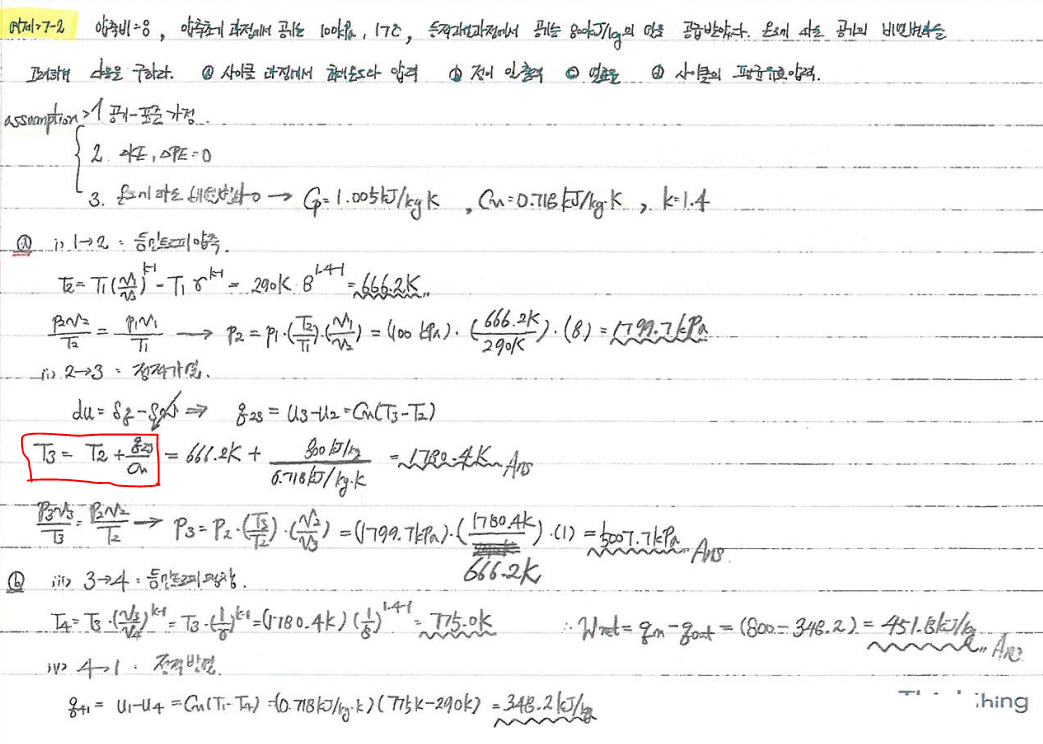 예제>7-2 압축비=8, 압축초기 과정에서 공기는 100kPa, 17℃, 등적가열과정에서 공기는 800kJ/kg의 열을 공급받았다. 온도에 따른 공기의 비열변화를
고려하여 다음을 구하라. ⓐ 사이클 과정에서 최대온도와 압력 ⓑ 전체 일출력 ⓒ 열효율 ⓓ 사이클의 평균유효압력.
assumption > 1 공기-표준가정.
2. ΔKE, ΔPE=0
3. 온도에 따른 → Cp=1.005kJ/kg·K, Cv=0.718kJ/kg·K, k=1.4
ⓐ i) 1→2 : 등엔트로피압축.
T2=T1(v1/v2)^k-1 = T1 r^k-1 = 290K·8^1.4-1 = 666.2K
P2v2/T2 = P1v1/T1 → P2=P1·(T2/T1)·(v1/v2)=(100kPa)·(666.2K/290K)·(8)=1799.7kPa
ii) 2→3 : 정적가열.
du=δq-δw ⇒ q23=u3-u2=Cv(T3-T2)
T3= T2+q23/Cv = 666.2K + 800kJ/kg / 0.718kJ/kg·K = 1780.4K Ans
P3v3/T3=P2v2/T2 → P3=P2·(T3/T2)·(v2/v3)=(1799.7kPa)·(1780.4K/666.2K)·(1)= Ans.
ⓑ iii) 3→4 : 등엔트로피팽창.
T4=T3·(v3/v4)^k-1=T3·(1/r)^k-1=(1780.4K)(1/8)^1.4-1=775.0K ∴ Wnet=qin-qout=(800-348.2)=451.8kJ/kg Ans.
iv) 4→1 : 정적방열.
q41= u1-u4=Cv(T1-T4)=(0.718kJ/kg·K)(775K-290K)=348.2kJ/kg
hing